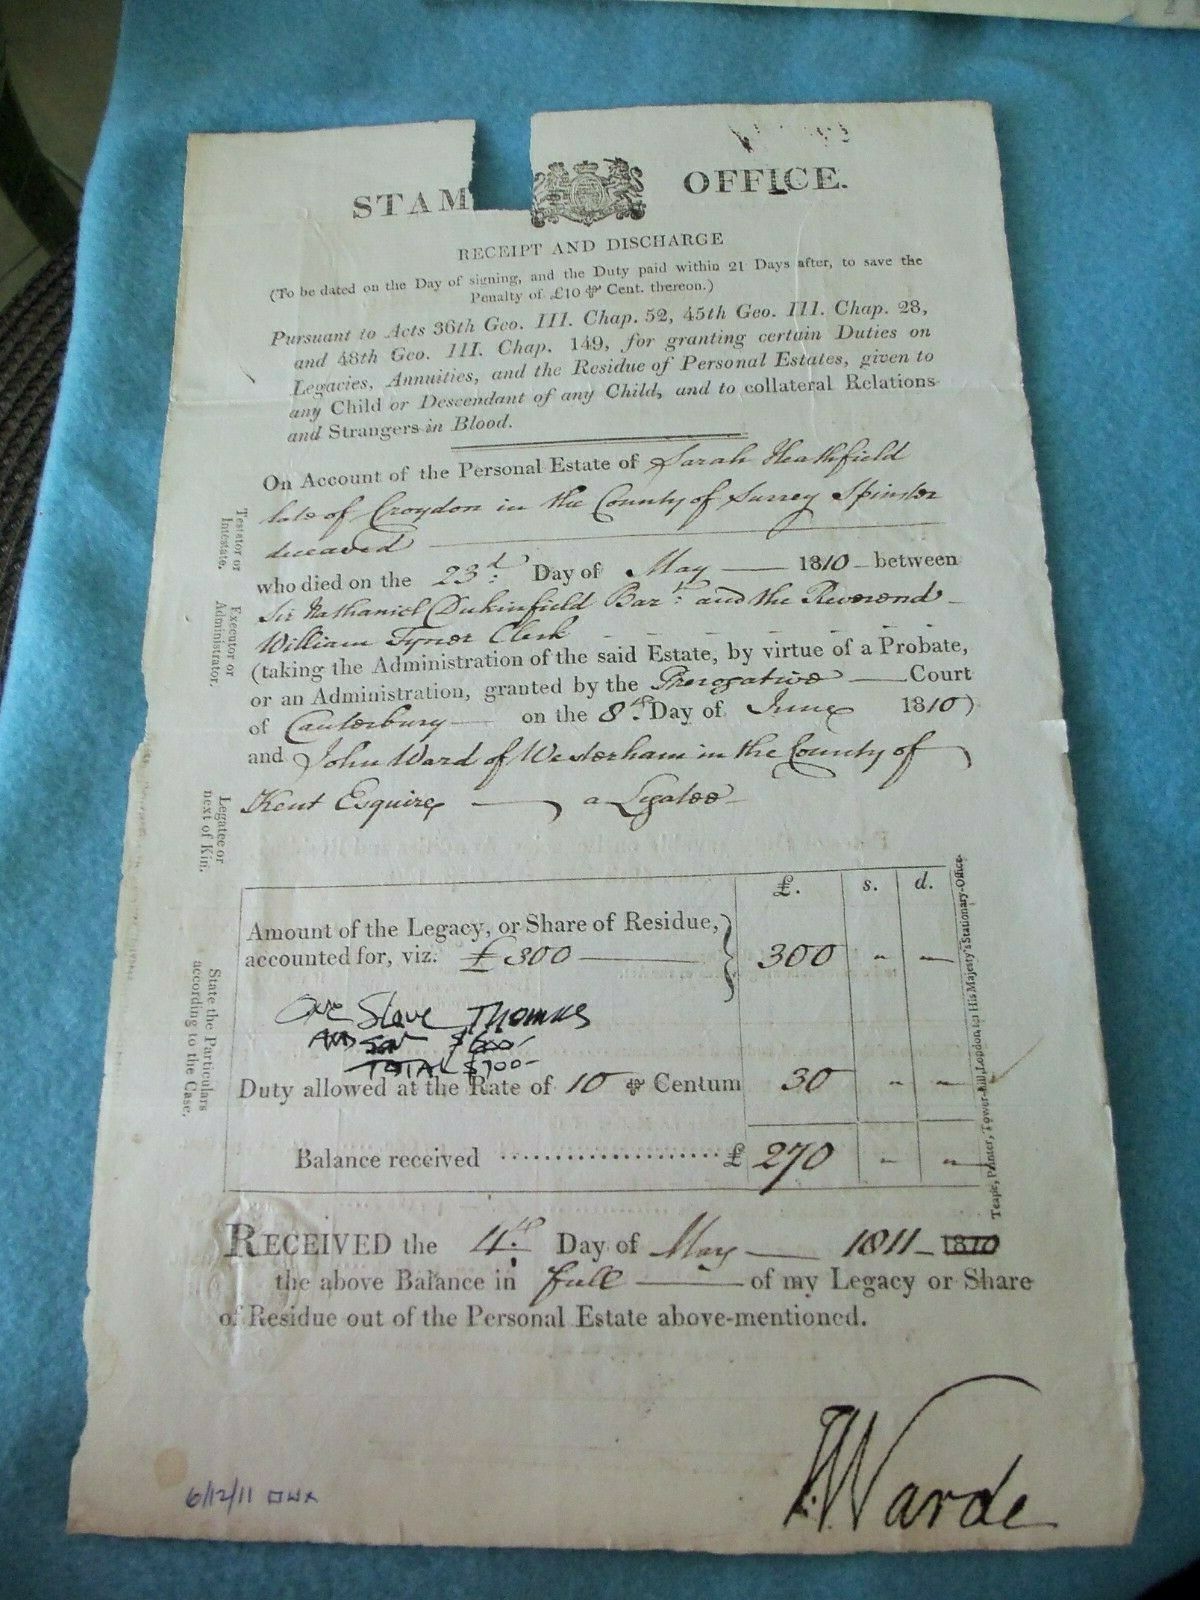 STAM OFFICE.
RECEIPT AND DISCHARGE
(To be dated on the Day of signing, and the Duty paid within 21 Days after, to save the
Penalty of £10 ⅌ Cent. thereon.)
Pursuant to Acts 36th Geo. III. Chap. 52, 45th Geo. III. Chap. 28,
and 48th Geo. III. Chap. 149, for granting certain Duties on
Legacies, Annuities, and the Residue of Personal Estates, given to
any Child or Descendant of any Child, and to collateral Relations
and Strangers in Blood.
Testator or
Intestate.
On Account of the Personal Estate of Sarah Heathfield
late of Croydon in the County of Surrey Spinster
deceased
who died on the 23d. Day of May 1810 between
Executor or
Administrator.
Sir Nathaniel Dukinfield Bart. and the Reverend
William Tyner Clerk
(taking the Administration of the said Estate, by virtue of a Probate,
or an Administration, granted by the Prerogative Court
of Canterbury on the 8th. Day of June 1810)
and John Ward of Westerham in the County of
Legatee or
next of Kin.
Kent Esquire a Legatee
£. s. d.
State the Particulars
according to the Case.
Amount of the Legacy, or Share of Residue,
accounted for, viz. £300 300 " "
One Slave Thomas
AND Son $600-
TOTAL $700-
Duty allowed at the Rate of 10 ⅌ Centum 30 " "
Balance received £ 270 " "
Teape, Printer, Tower-hill, London for His Majesty's Stationary-Office.
RECEIVED the 4th. Day of May 1811 1810
the above Balance in full of my Legacy or Share
of Residue out of the Personal Estate above-mentioned.
Warde
6/12/11